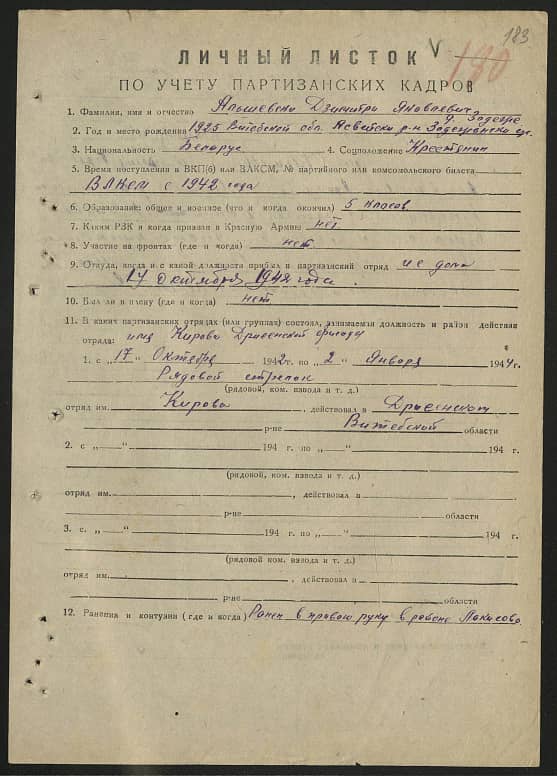 183
ЛИЧНЫЙ ЛИСТОК V 180
ПО УЧЕТУ ПАРТИЗАНСКИХ КАДРОВ
1. Фамилия, имя и отчество Альшевски Дзмитри Яковлевич
д. Задежье
2. Год и место рождения 1925 Витебской обл. Асвейски р-н
3. Национальность Беларус 4. Соцположение Крестянин
5. Время поступления в ВКП(б) или ВЛКСМ, № партийного или комсомольского билета
ВЛКСМ с 1942 года
6. Образование: общее и военное (что и когда окончил) 5 класов
7. Каким РВК и когда призван в Красную Армию нет
8. Участие на фронтах (где и когда) нет
9. Откуда, когда и с какой должности прибыл в партизанский отряд ис дома
17 Октября 1942 года.
10. Был ли в плену (где и когда) нет
11. В каких партизанских отрядах (или группах) состоял, занимаемая должность и район действия
отряда: имя Кирова Дрысенской бригады
1. с „17" Октября 1942 г. по „2" Января 1944 г.
Рядовой стрелок
(рядовой, ком. взвода и т. д.)
отряд им. Кирова, действовал в Дрысенском
р-не Витебской области
2. с „—" 194 г. по „—" 194 г.
(рядовой, ком. взвода и т. д.)
отряд им. , действовал в
р-не области
3. с. „—" 194 г. по „—" 194 г.
(рядовой, ком. взвода и т. д.)
отряд им. , действовал в
р-не области
12. Ранения и контузии (где и когда) Ранен в правою руку в районе